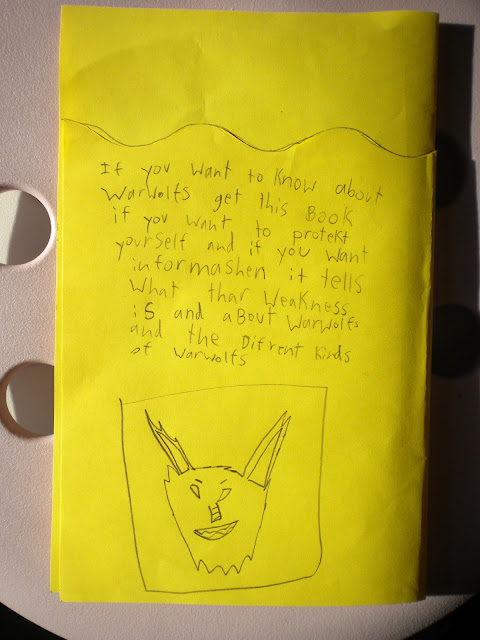 If you want to know about
Warwolfs get this Book
if you want to protekt
yourself and if you want
informashen it tells
What thar Weakness
iS and aBout Warwolfs
and the Difrent Kinds
of warwolfs